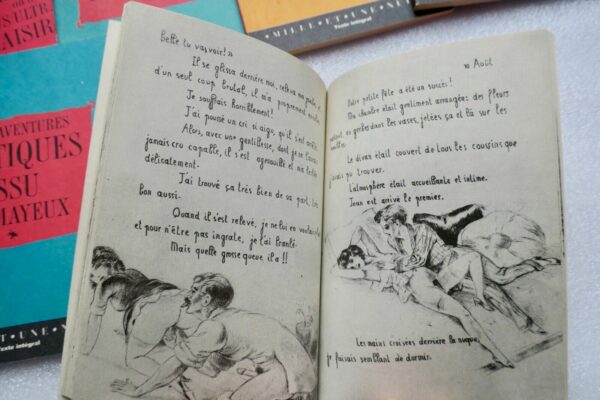 OU U
US ULTR
AISIR
AVENTURES
TIQUES
SSU
MAYEUX
UNE
Texte intégral
MILLE ET UNE NU
Texte intégral
Belle tu vas voir! »
Il se glissa derrière moi, releva ma robe, et
d'un seul coup brutal, il m'a proprement
Je souffrais horriblement!
J'ai poussé un cri si aigu, qu'il s'est
Alors, avec une gentillesse, dont je ne l'aurais
jamais cru capable, il s'est agenouillé et m'a
délicatement.
J'ai trouvé ça très bien de sa part, très
bon aussi.
Quand il s'est relevé, je ne lui en voulais
et pour n'être pas ingrate, je l'ai branlé.
Mais quelle grosse queue il a !!
10 Août
Notre petite fête a été un succès!
Ma chambre était gentiment arrangée: des fleurs
en gerbes dans les vases, jetées ça et là sur les
Le divan était couvert de tous les coussins que
j'avais pu trouver.
L'atmosphère était accueillante et intime.
Jean est arrivé le premier.
Les mains croisées derrière la nuque,
je faisais semblant de dormir.